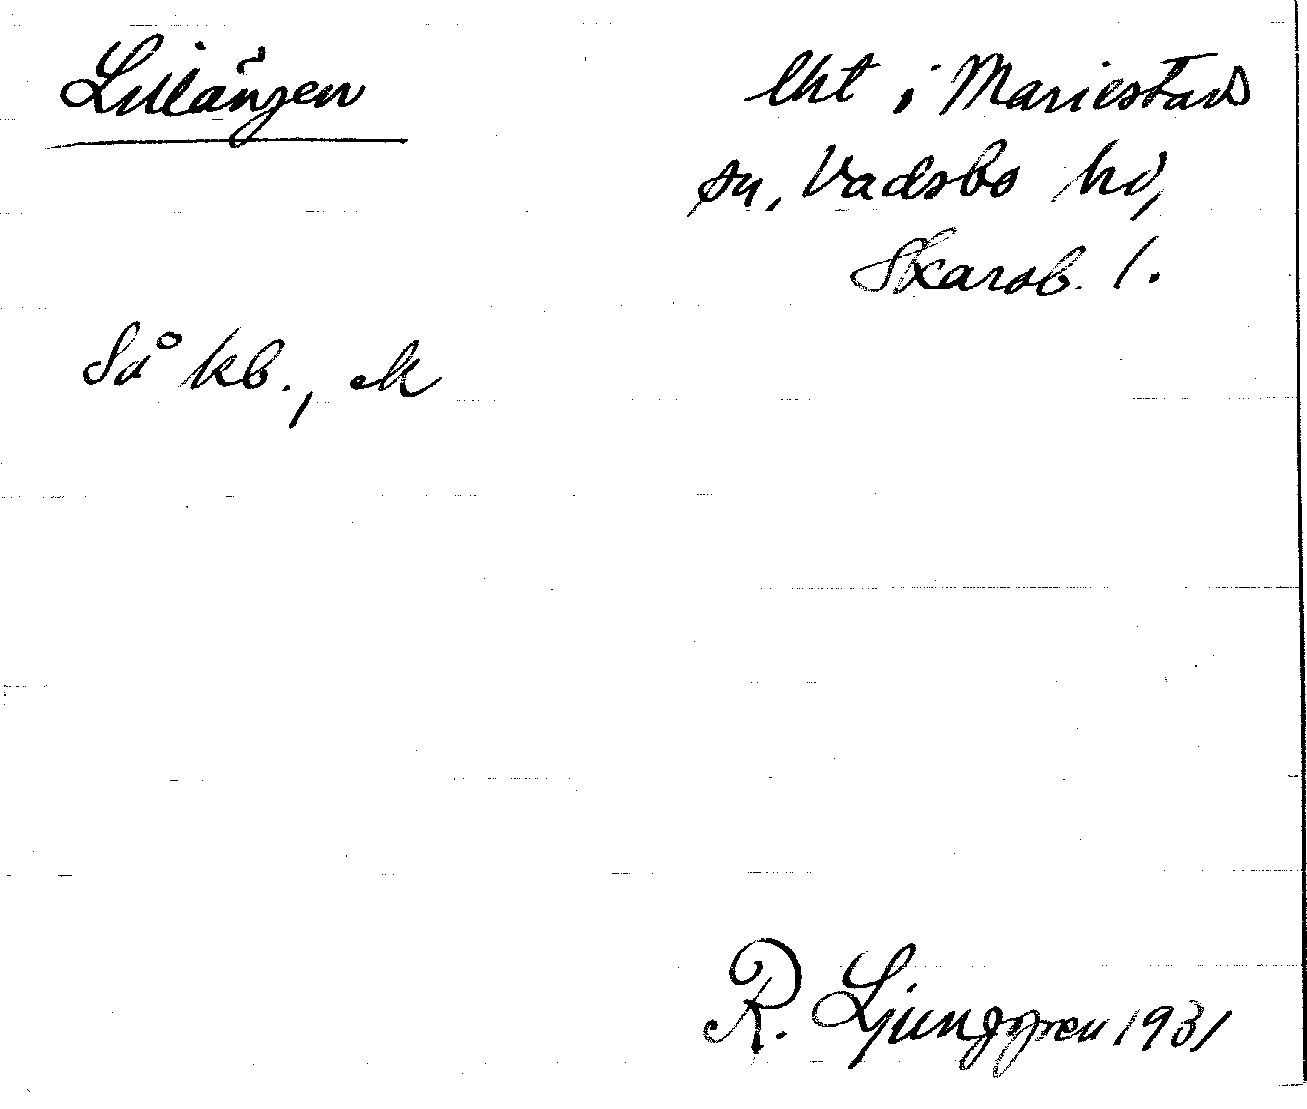 Lillängen
lht i Mariestads
sn, Vadsbo hd,
Skarab. l.
Så kb., ek
R. Ljunggren 1931